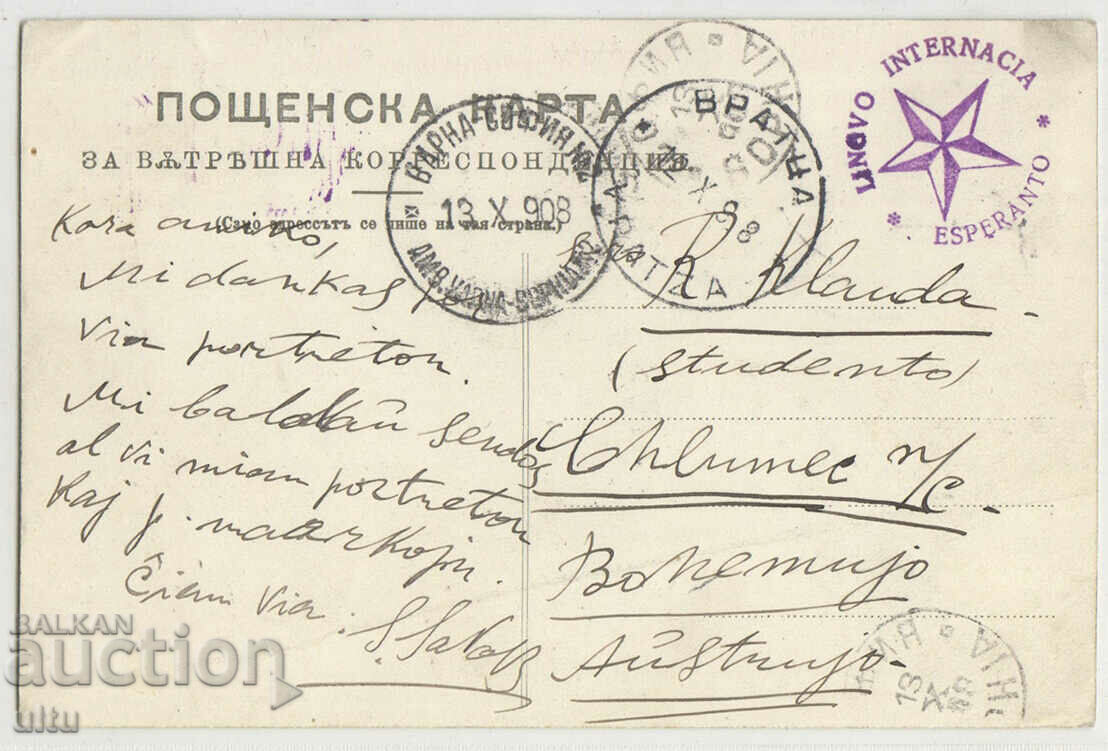 ПОЩЕНСКА КАРТА
ЗА ВѪТРѢШНА КОРРЕСПОНДЕНЦИЯ.
(Само адрессътъ се пише на тая страна.)
LINGVO INTERNACIA
* ESPERANTO *
ВАРНА-СОФИЯ
13 X 908
ВРАТЦА
VRATZA
12 X 08
Kara amiko,
Mi dankas
via portreton.
Mi baldaŭ sendos
al vi mian portreton
kaj p. markojn.
Ĉiam via
R. Klauda
(studento)
Chlumec n/C.
Bohemujo
Aŭstrujo
BALKAN
auction
ultu